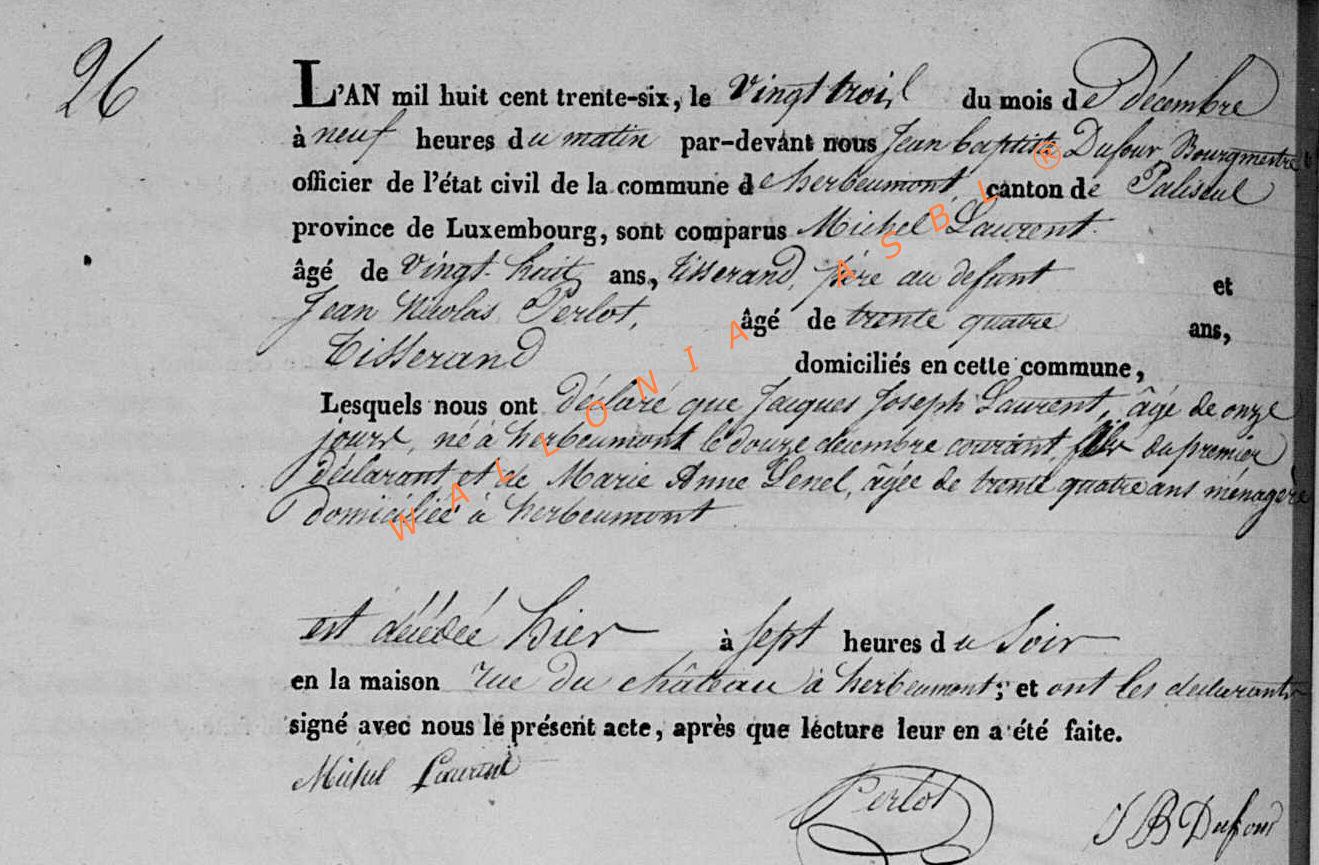 26
L'AN mil huit cent trente-six, le vingt trois du mois de décembre
à neuf heures du matin par-devant nous Jean baptiste Dufour Bourgmestre
officier de l'état civil de la commune de herbeumont, canton de Paliseul
province de Luxembourg, sont comparus Michel Laurent
âgé de vingt huit ans, tisserand, père au defunt et
Jean Nicolas Perlot, âgé de trente quatre ans,
Tisserand domiciliés en cette commune,
Lesquels nous ont déclaré que Jacques Joseph Laurent, âgé de onze
jours, né à herbeumont le douze décembre courant, fils du premier
déclarant et de Marie Anne Genel, âgée de trente quatre ans ménagère
domiciliée à herbeumont
est décédé hier à sept heures du soir
en la maison rue du château à herbeumont; et ont les déclarants
signé avec nous le présent acte, après que lecture leur en a été faite.
Michel Laurent Perlot J B Dufour
WALLONIA ASBL ®